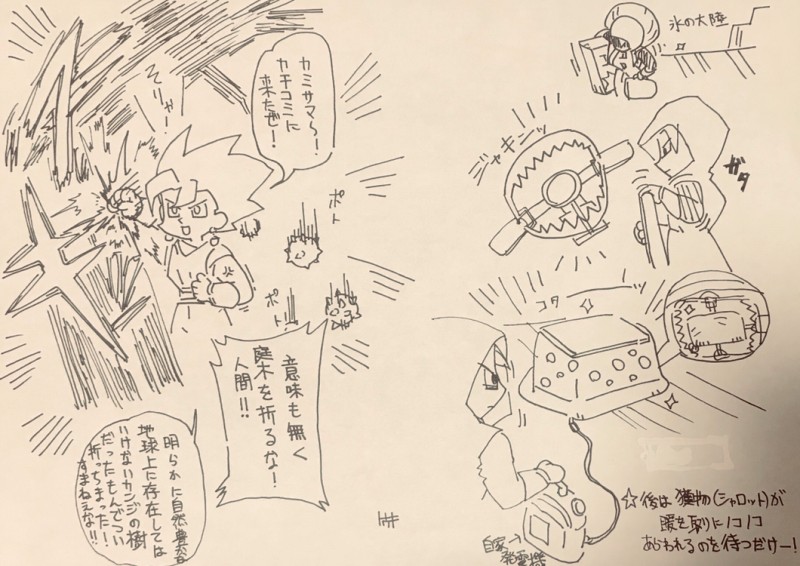 カミサマらー！
カチコミに
来たぜー！
そりゃー
ポト
ポト
意味も無く
庭木を折るな！
人間！！
明らかに自然豊かな
地球上に存在しては
いけないカンジの樹
だったもんでつい
折っちまった！
すまねぇな！！
氷の大陸
ジャキンッ
ガタ
コタ
自家→
発電機
☆後は獲物(シャロット)が
暖を取りにノコノコ
あらわれるのを待つだけー！